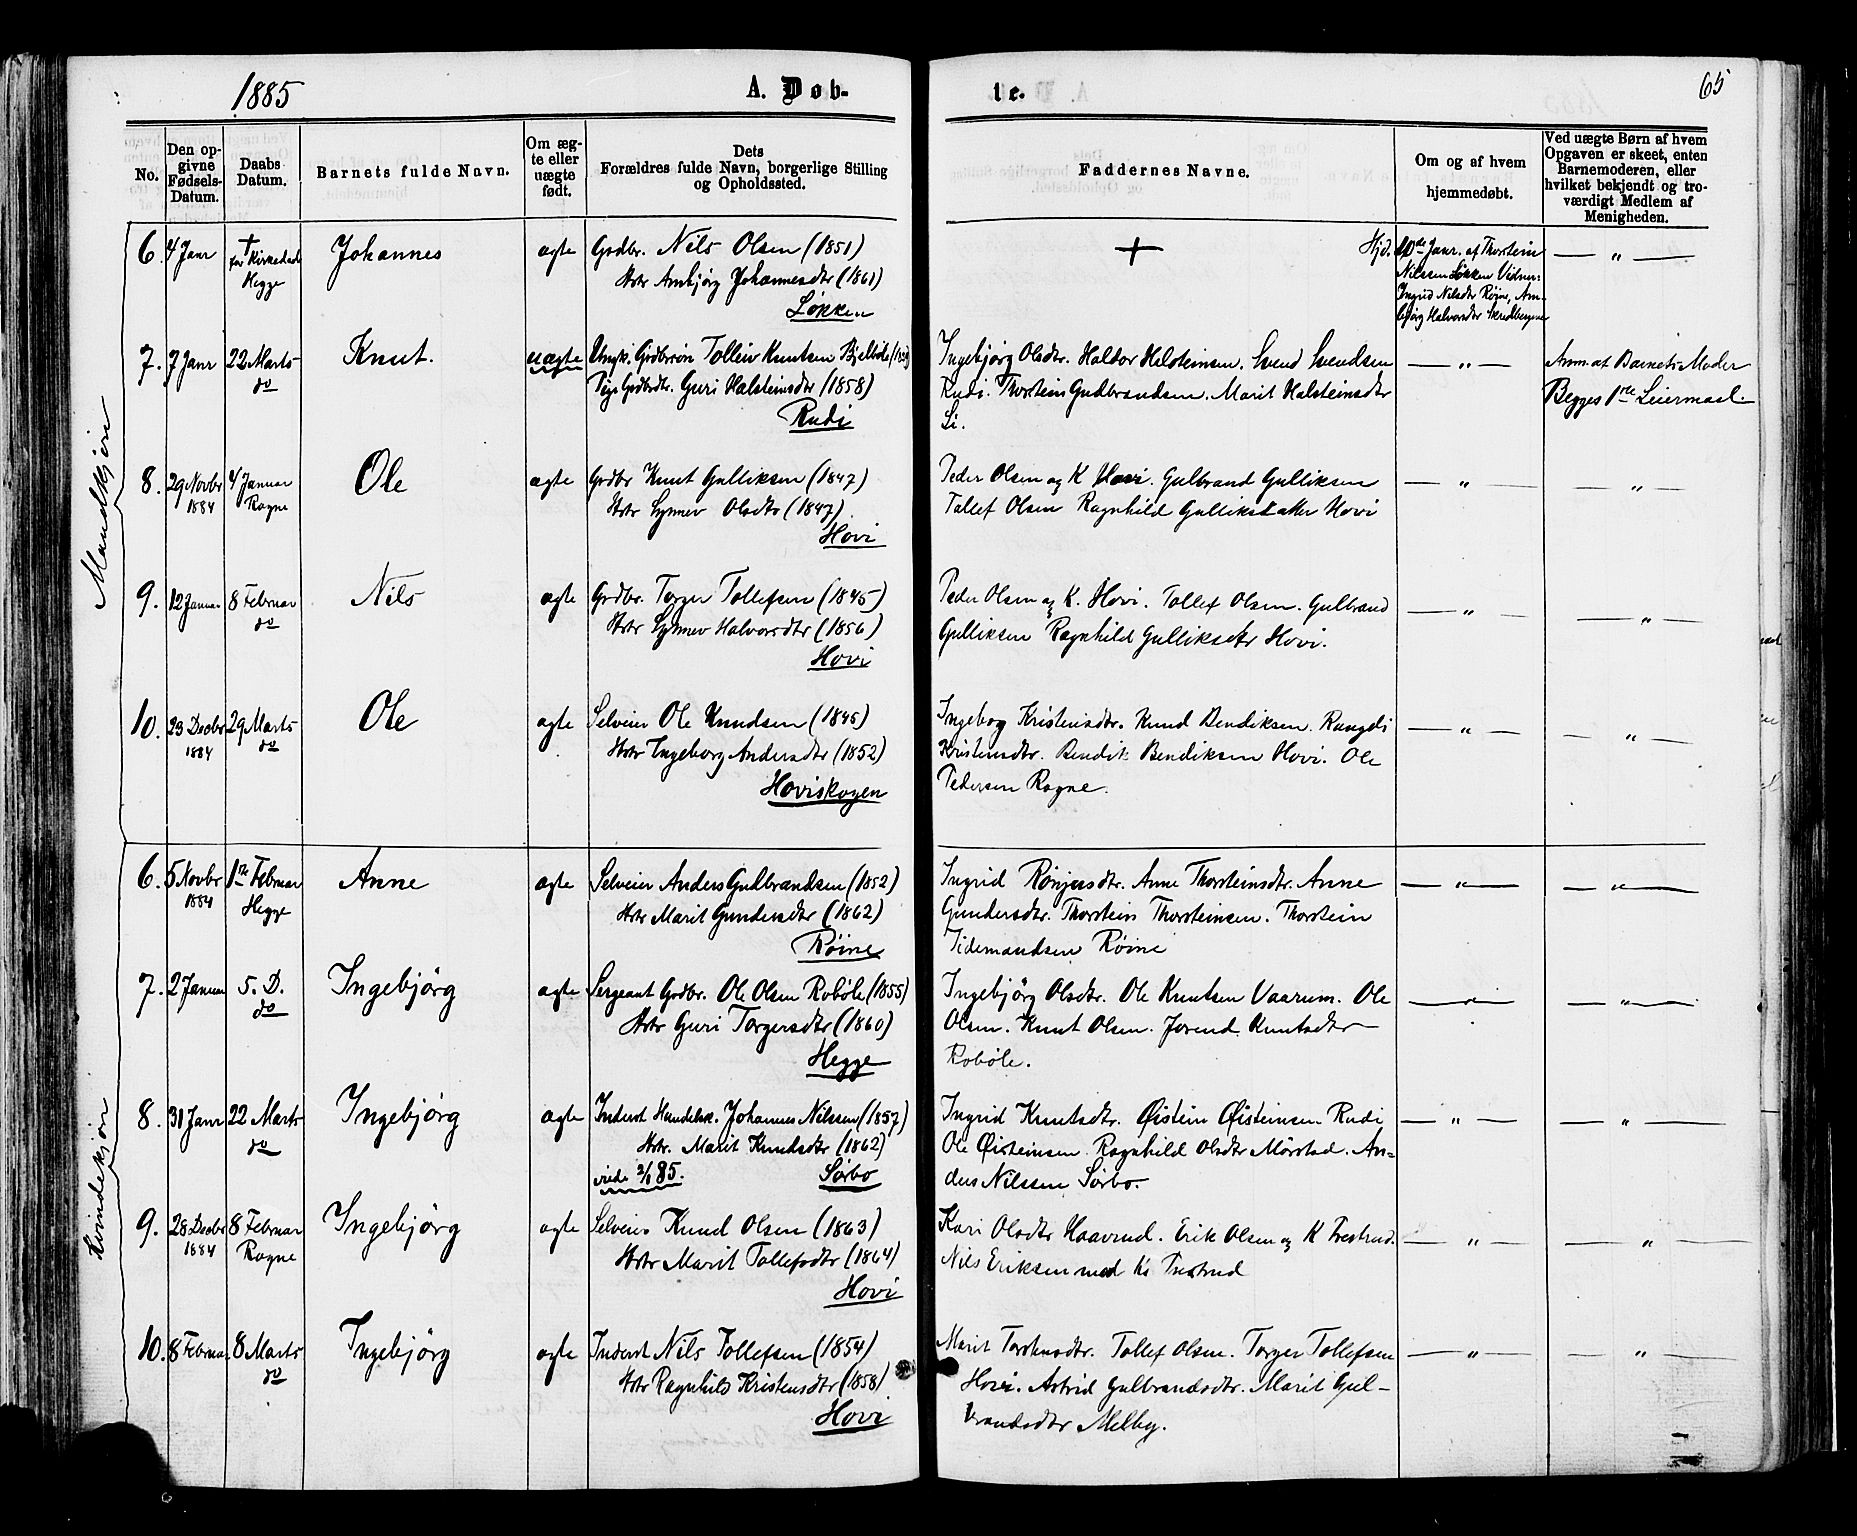 1885
A. Døb-
te.
65
No.
Den op-
givne
Fødsels-
Datum.
Daabs
Datum.
Barnets fulde Navn.
Om æg-
te eller
uægte
født.
Dets
Forældres fulde Navn, borgerlige Stilling
og Opholdssted.
Faddernes Navne.
Om og af hvem
hjemmedøbt.
Ved uægte Børn af hvem
Opgaven er skeet, enten
Barnemoderen, eller
hvilket bekjendt og tro-
værdigt Medlem af
Menigheden.
Mandkjøn
6. 4 Janr † før Kirkedaab Hegge Johannes ægte Grdbr. Nils Olsen (1851)
Hstr Ambjørg Johannesdtr (1861)
Løkken
+ Hjd. de Janr. af Thorstein
Nilssen Løkken Vidner:
Ingrid Nilsdtr Røine, Am-
bjørg Halvorsdtr
— " —
7. 7 Janr 22 Marts do Knut. uægte Ungk. Grdbrsøn Tolleiv Knutsen
Pige Grdbrdtr. Guri Halsteinsdtr (1858)
Rudi
Ingebjørg Olsdtr. Haldor Helsteinsen. Svend Svendsen
Rudi. Thorstein Gudbrandsen. Marit Halsteinsdtr
Li.
— " —
Anm. at Barnets Moder
Begges 1ste Leiermaal.
8. 29 Novbr 1884 4 Januar Rogne Ole ægte Grdbr Knut Gulliksen (1847)
Hstr Synnev Olsdtr (1847)
Hovi
Peder Olsen og K Hovi. Gulbrand Gulliksen
Tollef Olsen Ragnhild Gulliksdatter Hovi
— " — — " —
9. 12 Januar 8 Februar do Nils ægte Grdbr. Torger Tollefsen (1845)
Hstr Synnev Halvorsdtr (1856)
Hovi
Peder Olsen og K. Hovi. Tollef Olsen. Gulbrand
Gulliksen Ragnhild Gulliksdtr Hovi.
— " — — " —
10. 23 Decbr 1884 29 Marts do Ole ægte Selveier Ole Knudsen (1845)
Hstr Ingeborg Andersdtr (1852)
Hoviskogen
Ingebog Kristensdtr. Knud Bendiksen. Rangdi
Kristensdtr. Bendik Bendiksen Hovi. Ole
Pedersen Rogne.
— " — — " —
Kvindekjøn
6. 5 Novbr 1884 1ste Februar Hegge Anne ægte Selveier Anders Gudbrandsen (1852)
Hstr Marit Gundersdtr (1862)
Røine
Ingrid Rønjusdtr. Anne Thorsteinsdtr. Anne
Gundersdtr. Thorstein Thorsteinsen. Thorstein
Tidemandsen Røine
— " — — " —
7. 2 Januar 5. D. do Ingebjørg ægte Sergeant Grdbr. Ole Olsen Robøle (1855)
Hstr Guri Torgersdtr (1860)
Hegge
Ingebjørg Olsdtr. Ole Knutsen Vaarum. Ole
Olsen. Knut Olsen. Jorend Knutsdtr
Robøle.
— " — — " —
8. 31 Janr 22 Marts do Ingebjørg ægte Inderst Handelsk. Johannes Nilssen (1857)
Hstr. Marit Knudsdtr (1862)
viede 2/1 85. Sørbo
Ingrid Knutsdtr. Øistein Øisteinsen Rudi
Ole Øisteinsen Ragnhild Olsdtr Mørstad. An-
ders Nilssen Sørbo.
— " — — " —
9. 28 Decbr 1884 8 Februar Rogne Ingebjørg ægte Selveier Knud Olsen (1863)
Hstr Marit Tollefsdtr (1864)
Hovi
Kari Olsdtr Haavrud. Erik Olsen og K Trestrud.
Nils Eriksen med K Trestrud
— " — — " —
10. 8 Februar 8 Marts do Ingebjørg ægte Inderst Nils Tollefsen (1854)
Hstr Ragnhild Kristensdtr (1858)
Hovi
Marit Torstensdtr. Tollef Olsen. Torger Tollefsen
Hovi. Astrid Gulbrandsdtr. Marit Gul-
brandsdtr Melby.
— " — — " —